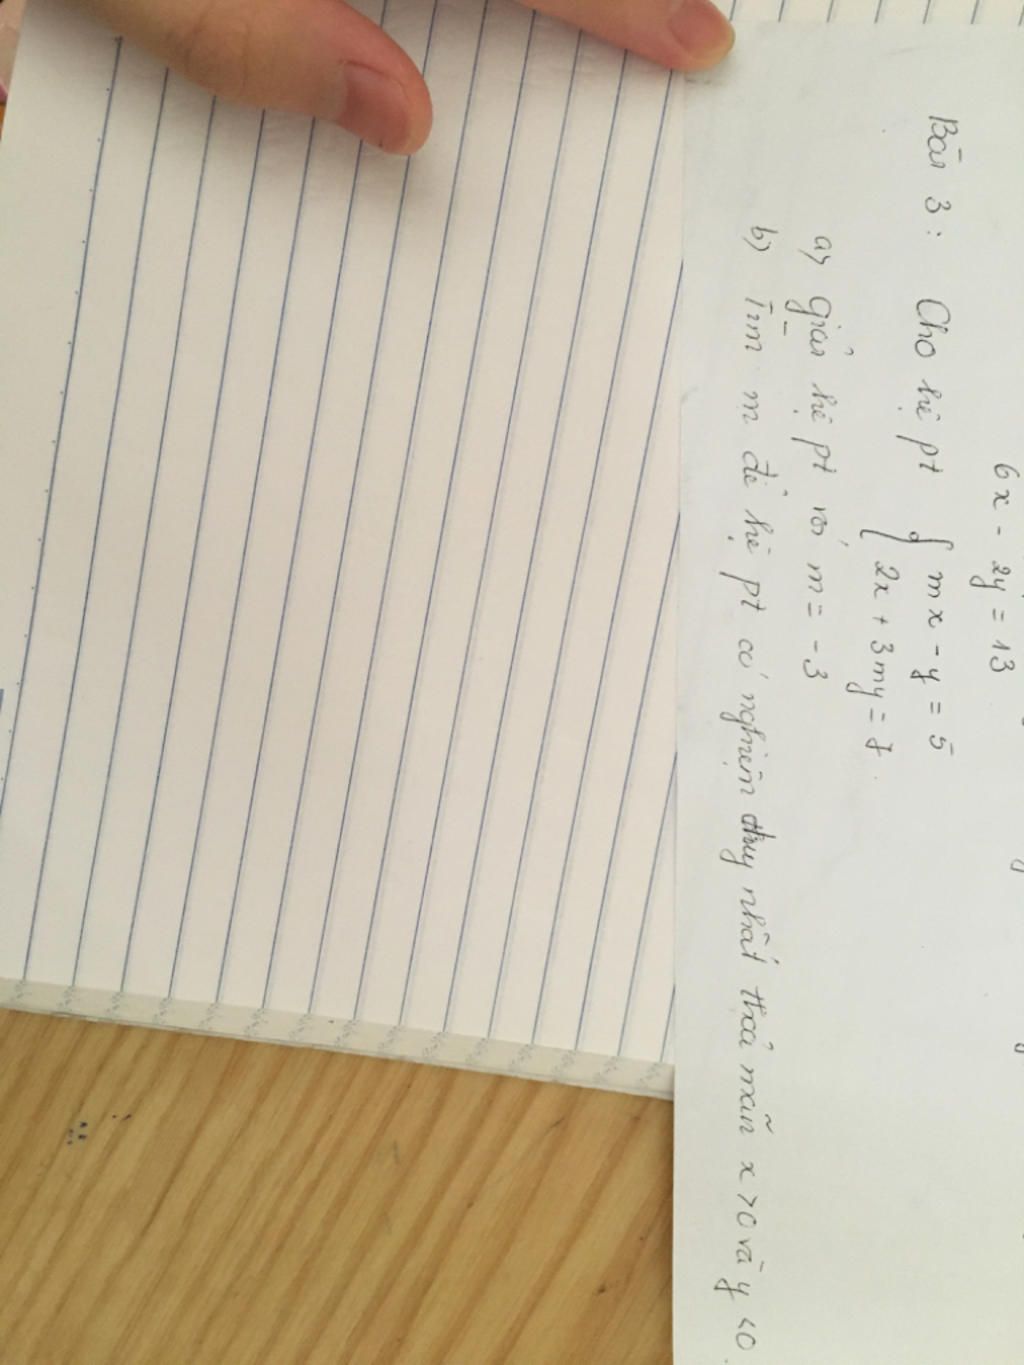 6x - 2y = 13
Bài 3: Cho hệ pt { mx - y = 5
2x + 3my = 7.
a) giải hệ pt với m = -3
b) Tìm m để hệ pt có nghiệm duy nhất thoả mãn x > 0 và y < 0.